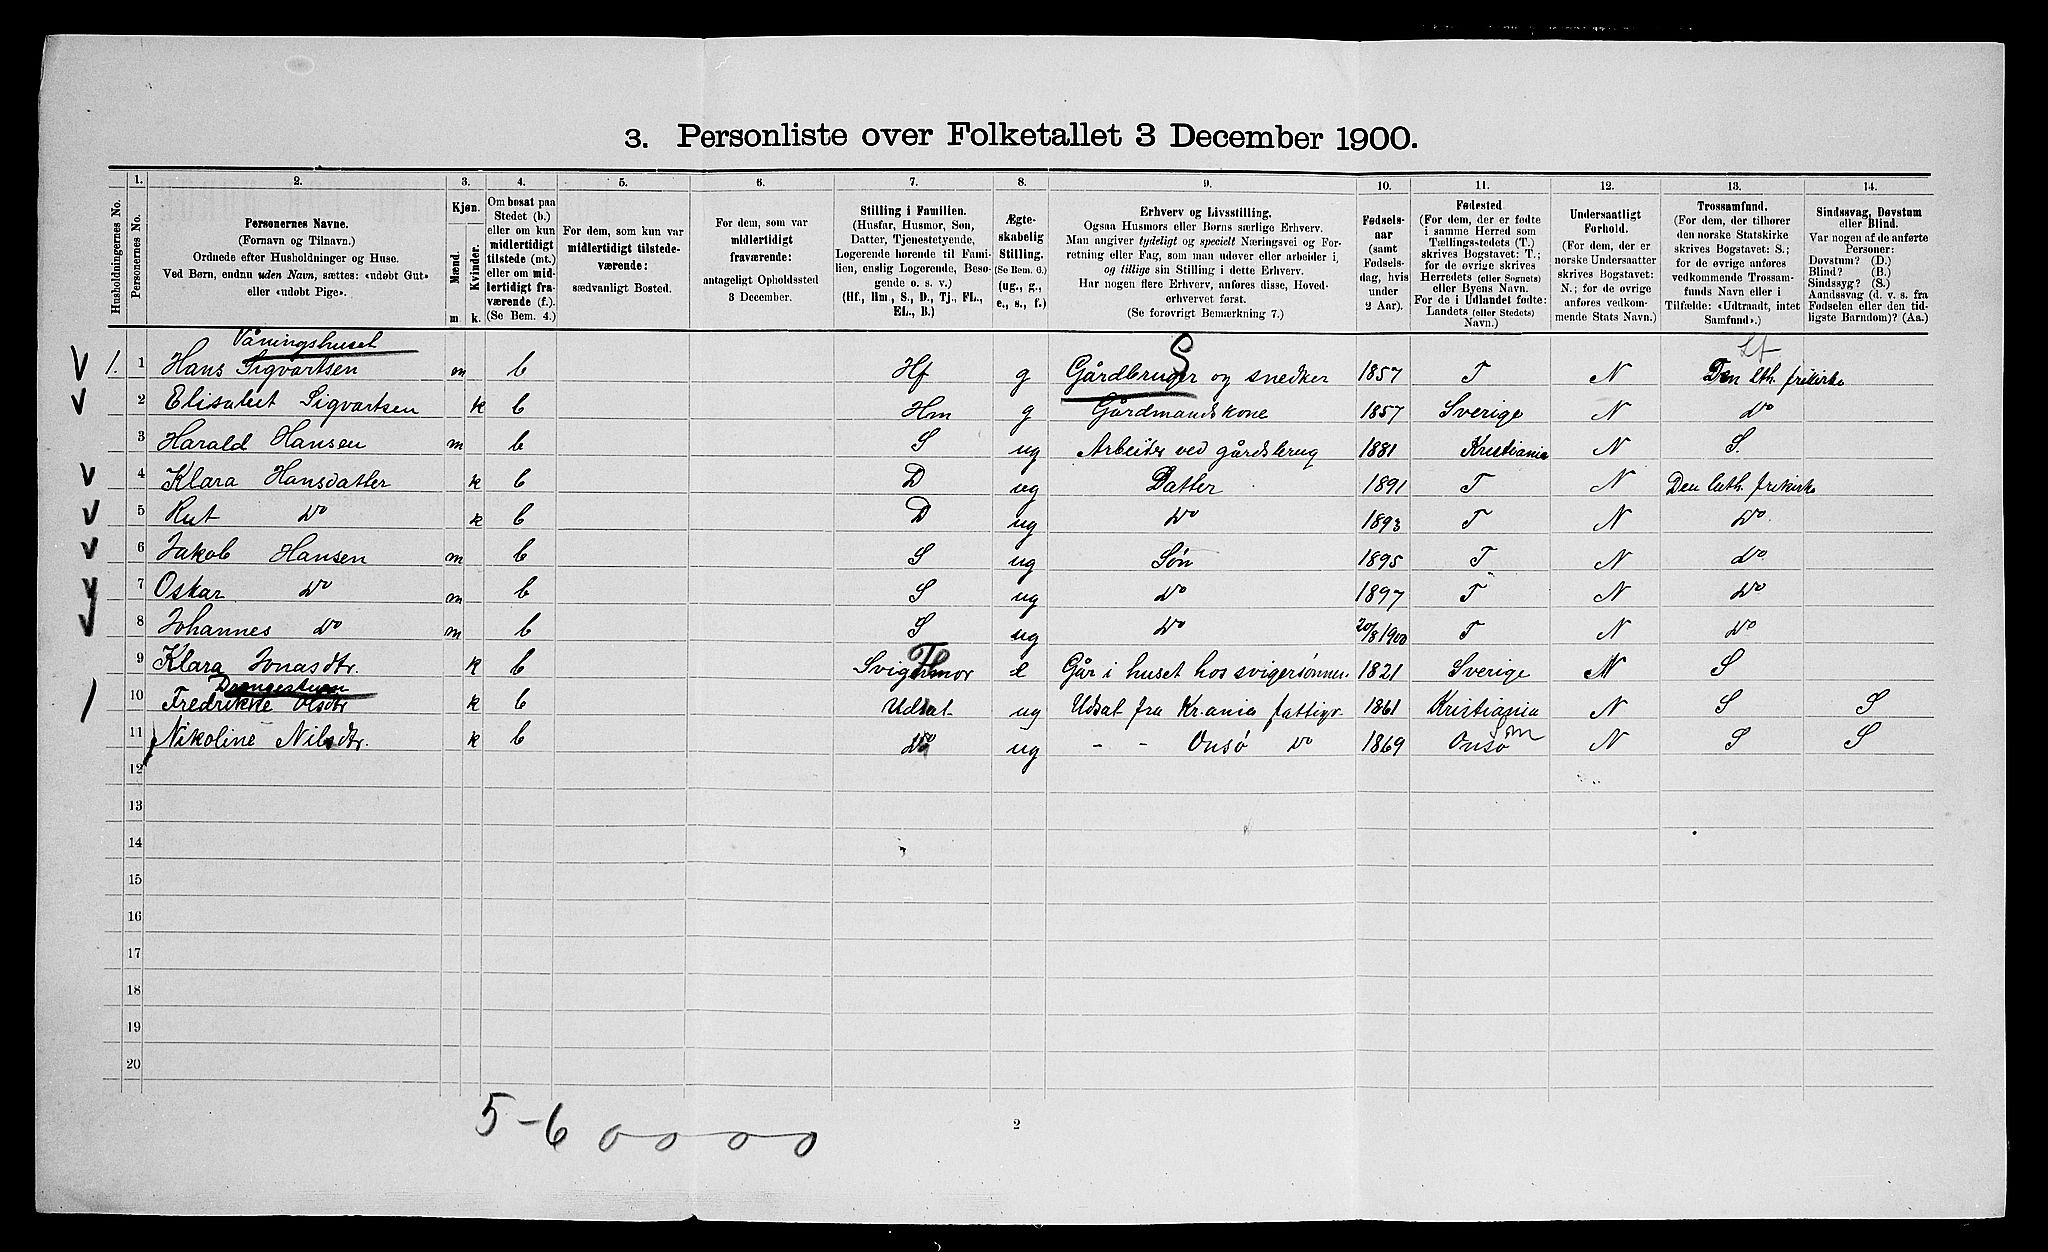 3. Personliste over Folketallet 3 December 1900.
1. 2. 3. 4. 5. 6. 7. 8. 9. 10. 11. 12. 13. 14.
Husholdningernes No.
Personernes No.
Personernes Navne.
(Fornavn og Tilnavn.)
Ordnede efter Husholdninger og Huse.
Ved Børn, endnu uden Navn, sættes: «udøbt Gut»
eller «udøbt Pige».
Kjøn.
Mænd.
Kvinder.
m. k.
Om bosat paa
Stedet (b.)
eller om kun
midlertidigt
tilstede (mt.)
eller om mid-
lertidigt fra-
værende (f.).
(Se Bem. 4.)
For dem, som kun var
midlertidigt tilstede-
værende:
sædvanligt Bosted.
For dem, som var
midlertidigt
fraværende:
antageligt Opholdssted
3 December.
Stilling i Familien.
(Husfar, Husmor, Søn,
Datter, Tjenestetyende,
Logerende hørende til Fami-
lien, enslig Logerende, Besø-
gende o. s. v.)
(Hf., Hm., S., D., Tj., FL.,
EL., B.)
Ægte-
skabelig
Stilling.
(Se Bem. 6.)
(ug., g.,
e., s., f.)
Erhverv og Livsstilling.
Ogsaa Husmors eller Børns særlige Erhverv.
Man angiver tydeligt og specielt Næringsvei og For-
retning eller Fag, som man udøver eller arbeider i,
og tillige sin Stilling i dette Erhverv.
Har nogen flere Erhverv, anføres disse, Hoved-
erhvervet først.
(Se forøvrigt Bemærkning 7.)
Fødsels-
aar
(samt
Fødsels-
dag, hvis
under
2 Aar).
Fødested.
(For dem, der er fødte
i samme Herred som
Tællings-stedets (T.)
skrives Bogstavet: T.;
for de øvrige skrives
Herredets (eller Sognets)
eller Byens Navn.
For de i Udlandet fødte:
Landets (eller Stedets)
Navn.)
Undersaatligt
Forhold.
(For dem, der er
norske Undersaatter
skrives Bogstavet:
N.; for de øvrige
anføres vedkom-
mende Stats Navn.)
Trossamfund.
(For dem, der tilhører
den norske Statskirke
skrives Bogstavet: S.;
for de øvrige anføres
vedkommende Trossam-
funds Navn eller i
Tilfælde: «Udtraadt, intet
Samfund».)
Sindssvag, Døvstum
eller Blind.
Var nogen af de anførte
Personer:
Døvstum? (D.)
Blind? (B.)
Sindssyg? (S.)
Aandssvag (d. v. s. fra
Fødselen eller den tid-
ligste Barndom)? (Aa.)
Våningshuset S Lf
V 1. 1 Hans Sigvartsen m b Hf g Gårdbruger og snedker 1857 T N Den lth. frikirke
V 2 Elisabet Sigvartsen k b Hm g Gårdmandskone 1857 Sverige N Do
3 Harald Hansen m b S ug Arbeider ved gårdsbrug 1881 Kristiania N S.
V 4 Klara Hansdatter k b D ug Datter 1891 T N Den luth. frikirke
V 5 Rut Do k b D ug Do 1893 T N Do
V 6 Jakob Hansen m b S ug Søn 1895 T N Do
V 7 Oskar Do m b S ug Do 1897 T N Do
V 8 Johannes Do m b S ug Do 20/8 1900 T N Do
9 Klara Jonasdtr. k b Svigermor e Går i huset hos svigersønnen. 1821 Sverige N S
Drengestuen
10 Fredrikke Olsdtr k b Udsat ug Udsat fra Kr.ania fattigv. 1861 Kristiania N S S
11 Nikoline Nilsdtr. k b Do ug - - Onsø Do 1869 Onsø N S S
12
13
14
15
16
17
18
19
20
5-6 0 0 0 0
2